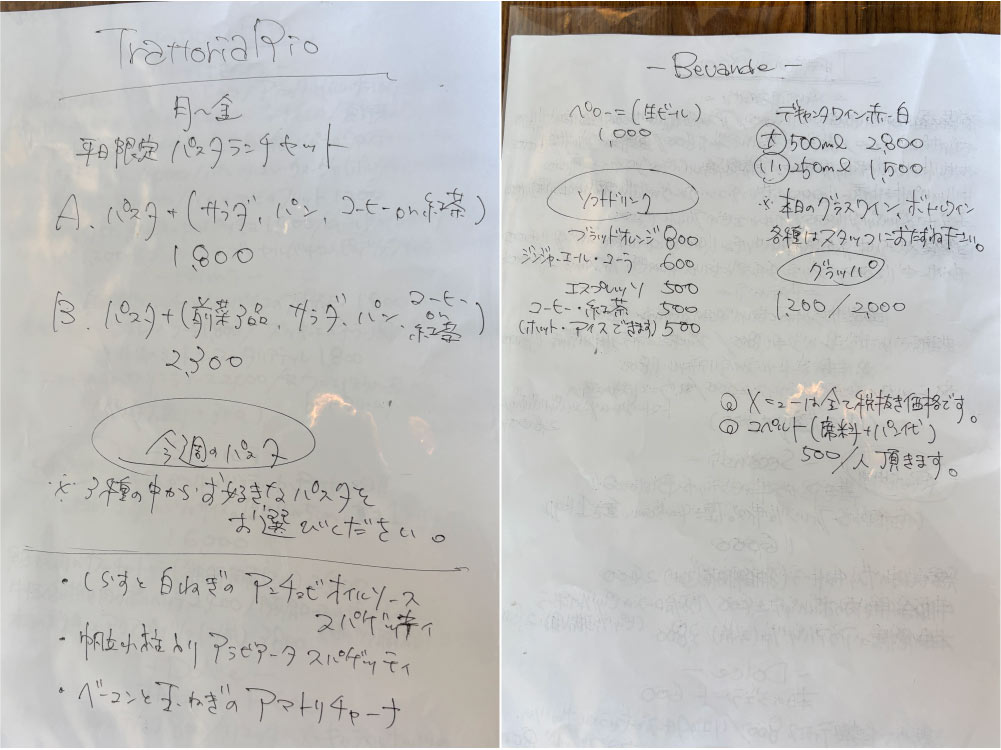 Trattoria Pio
月〜金
平日限定 パスタランチセット
A. パスタ + (サラダ、パン、コーヒー or 紅茶)
1,800
B. パスタ + (前菜3品、サラダ、パン、コーヒー or 紅茶)
2,300
今週のパスタ
※ 3種の中からお好きなパスタを
お選びください。
・しらすと白ねぎのアンチョビオイルソース
スパゲッティ
・帆立小柱入りアラビアータスパゲッティ
・ベーコンと玉ねぎのアマトリチャーナ
- Bevande -
ペローニ(生ビール)
1,000
ソフトドリンク
ブラッドオレンジ 800
ジンジャーエール・コーラ 600
エスプレッソ 500
コーヒー・紅茶 500
(ホット・アイスできます) 500
デキャンタワイン 赤・白
(大) 500ml 2,800
(小) 250ml 1,500
※ 本日のグラスワイン、ボトルワイン
各種はスタッフにおたずね下さい。
グラッパ
1,200/2,000
◎ メニューは全て税抜き価格です。
◎ コペルト(席料+パン代)
500/人 頂きます。